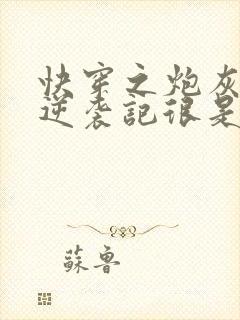 快穿之炮灰
逆袭記很是
蘇鲁